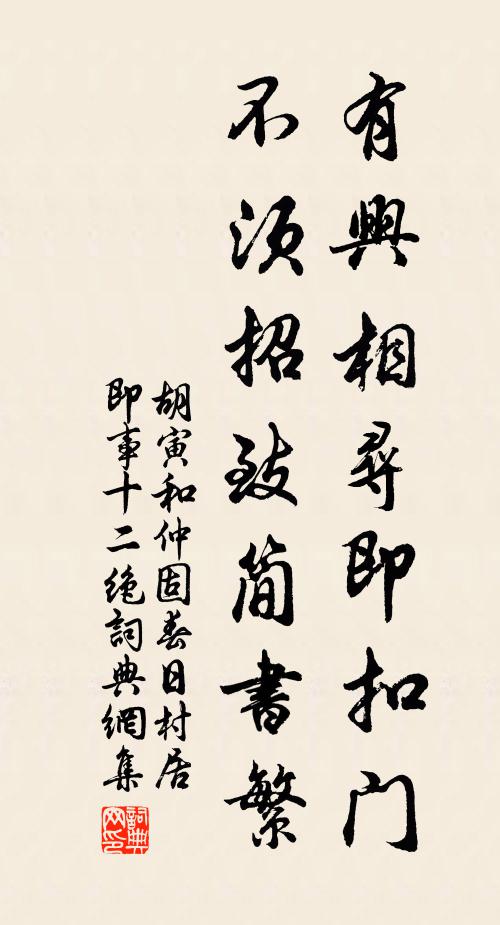 有興相尋即扣門
不須招致簡書繁
胡寅和仲固春日村居
即事十二絶詞典網集
詞典
网印